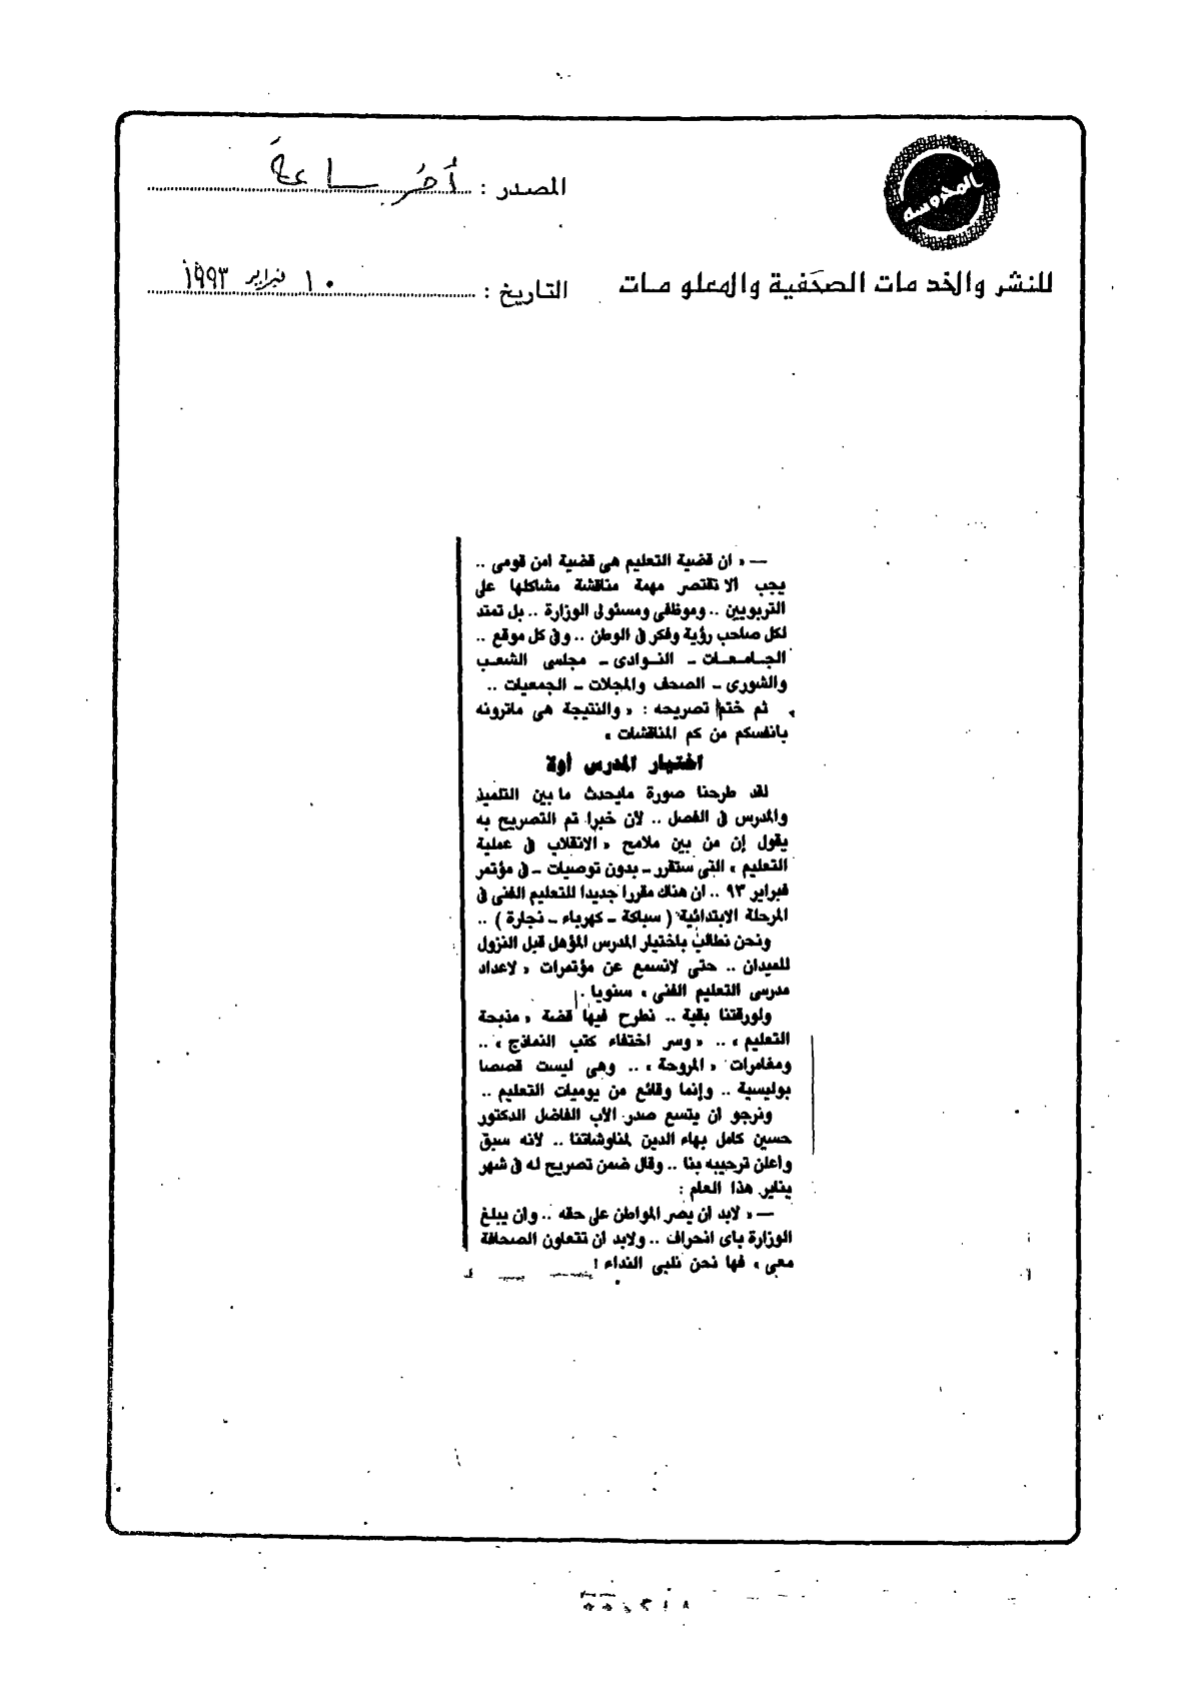 المحروسه
المصدر : آخر ساعة
للنشر والخدمات الصحفية والمعلومات
التاريخ : ١٠ فبراير ١٩٩٣
— « ان قضية التعليم هى قضية امن قومى ..
يجب الا تقتصر مهمة مناقشة مشاكلها على
التربويين .. وموظفى ومسئولى الوزارة .. بل تمتد
لكل صاحب رؤية وفكر فى الوطن .. وفى كل موقع ..
الجامعات - النوادى - مجلسى الشعب
والشورى - الصحف والمجلات - الجمعيات ..
ثم ختم تصريحه : « والنتيجة هى ماترونه
بانفسكم من كم المناقشات »
اختيار المدرس أولا
لقد طرحنا صورة مايحدث مابين التلميذ
والمدرس فى الفصل .. لان خبرا تم التصريح به
يقول إن من بين ملامح « الانقلاب فى عملية
التعليم » التى ستقرر - بدون توصيات - فى مؤتمر
فبراير ٩٣ .. ان هناك مقررا جديدا للتعليم الفنى فى
المرحلة الابتدائية ( سباكة - كهرباء - نجارة ) ..
ونحن نطالب باختيار المدرس المؤهل قبل النزول
للميدان .. حتى لانسمع عن مؤتمرات « لاعداد
مدرسى التعليم الفنى » سنويا .
ولورقتنا بقية .. نطرح فيها قضية « مذبحة
التعليم » .. « وسر اختفاء كتب النماذج » ..
ومغامرات « المروحة » .. وهى ليست قصصا
بوليسية .. وإنما وقائع من يوميات التعليم ..
ونرجو ان يتسع صدر الأب الفاضل الدكتور
حسين كامل بهاء الدين لمناوشاتنا .. لانه سبق
واعلن ترحيبه بنا .. وقال ضمن تصريح له فى شهر
يناير هذا العام :
— « لابد ان يصر المواطن على حقه .. وان يبلغ
الوزارة باى انحراف .. ولابد ان تتعاون الصحافة
معى » فها نحن نلبى النداء !